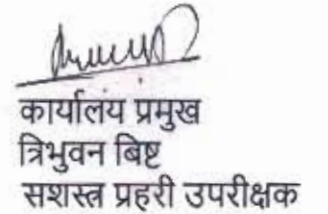 कार्यालय प्रमुख
त्रिभुवन बिष्ट
सशस्त्र प्रहरी उपरीक्षक